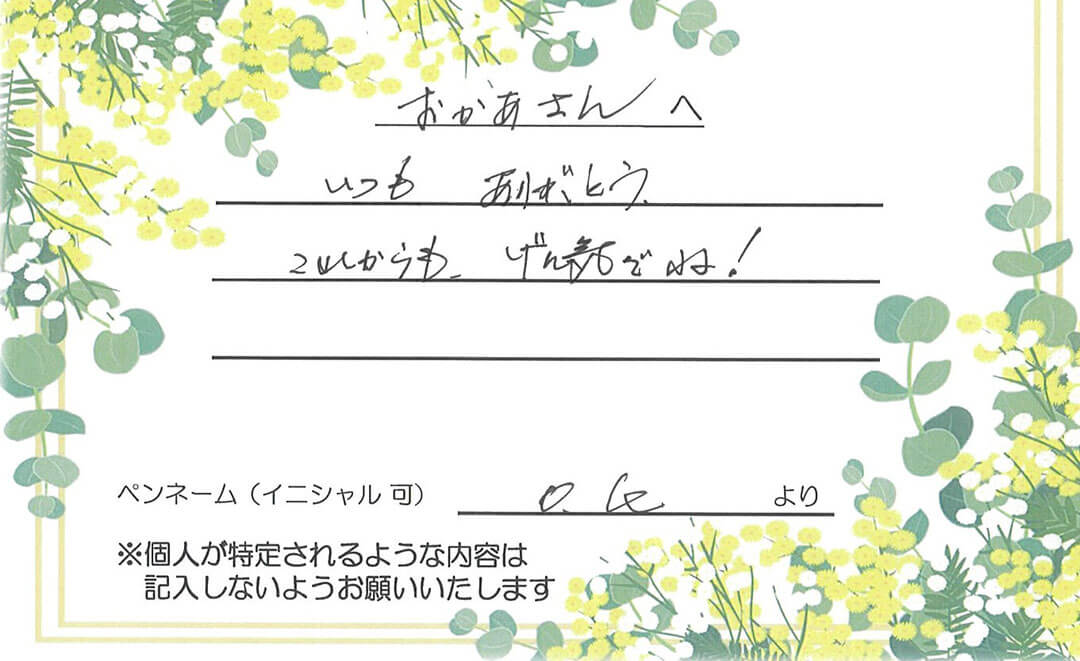 おかあさんへ
いつも ありがとう、
これからも、げん気でね!
ペンネーム（イニシャル 可） O. K より
※個人が特定されるような内容は
記入しないようお願いいたします